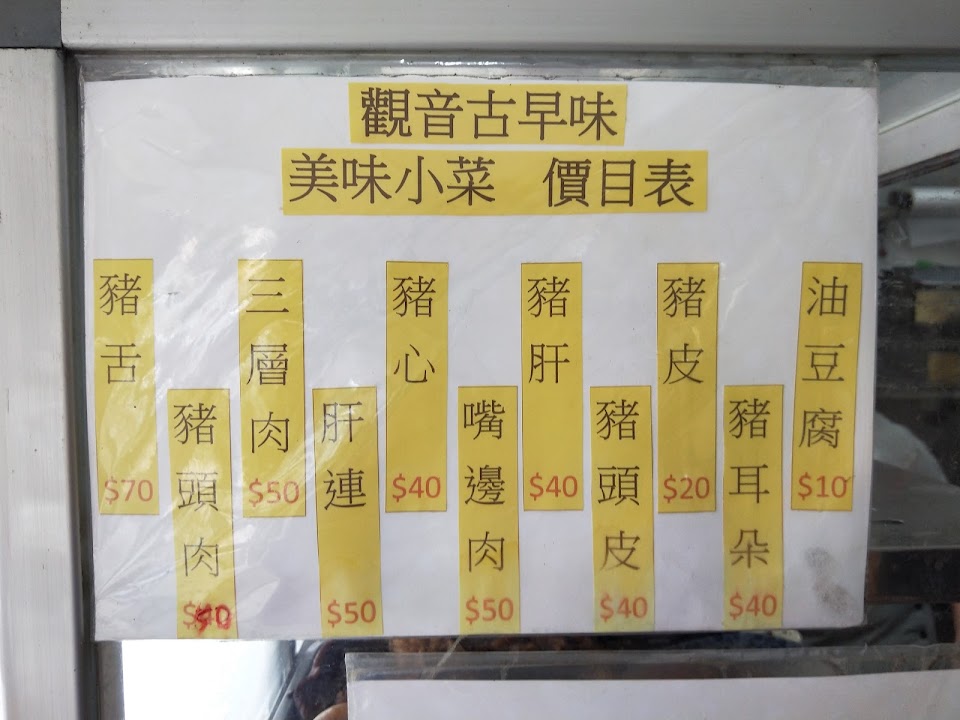 觀音古早味
美味小菜 價目表
豬舌 $70
豬頭肉
三層肉 $50
肝連 $50
豬心 $40
嘴邊肉 $50
豬肝 $40
豬頭皮 $40
豬皮 $20
豬耳朵 $40
油豆腐 $10